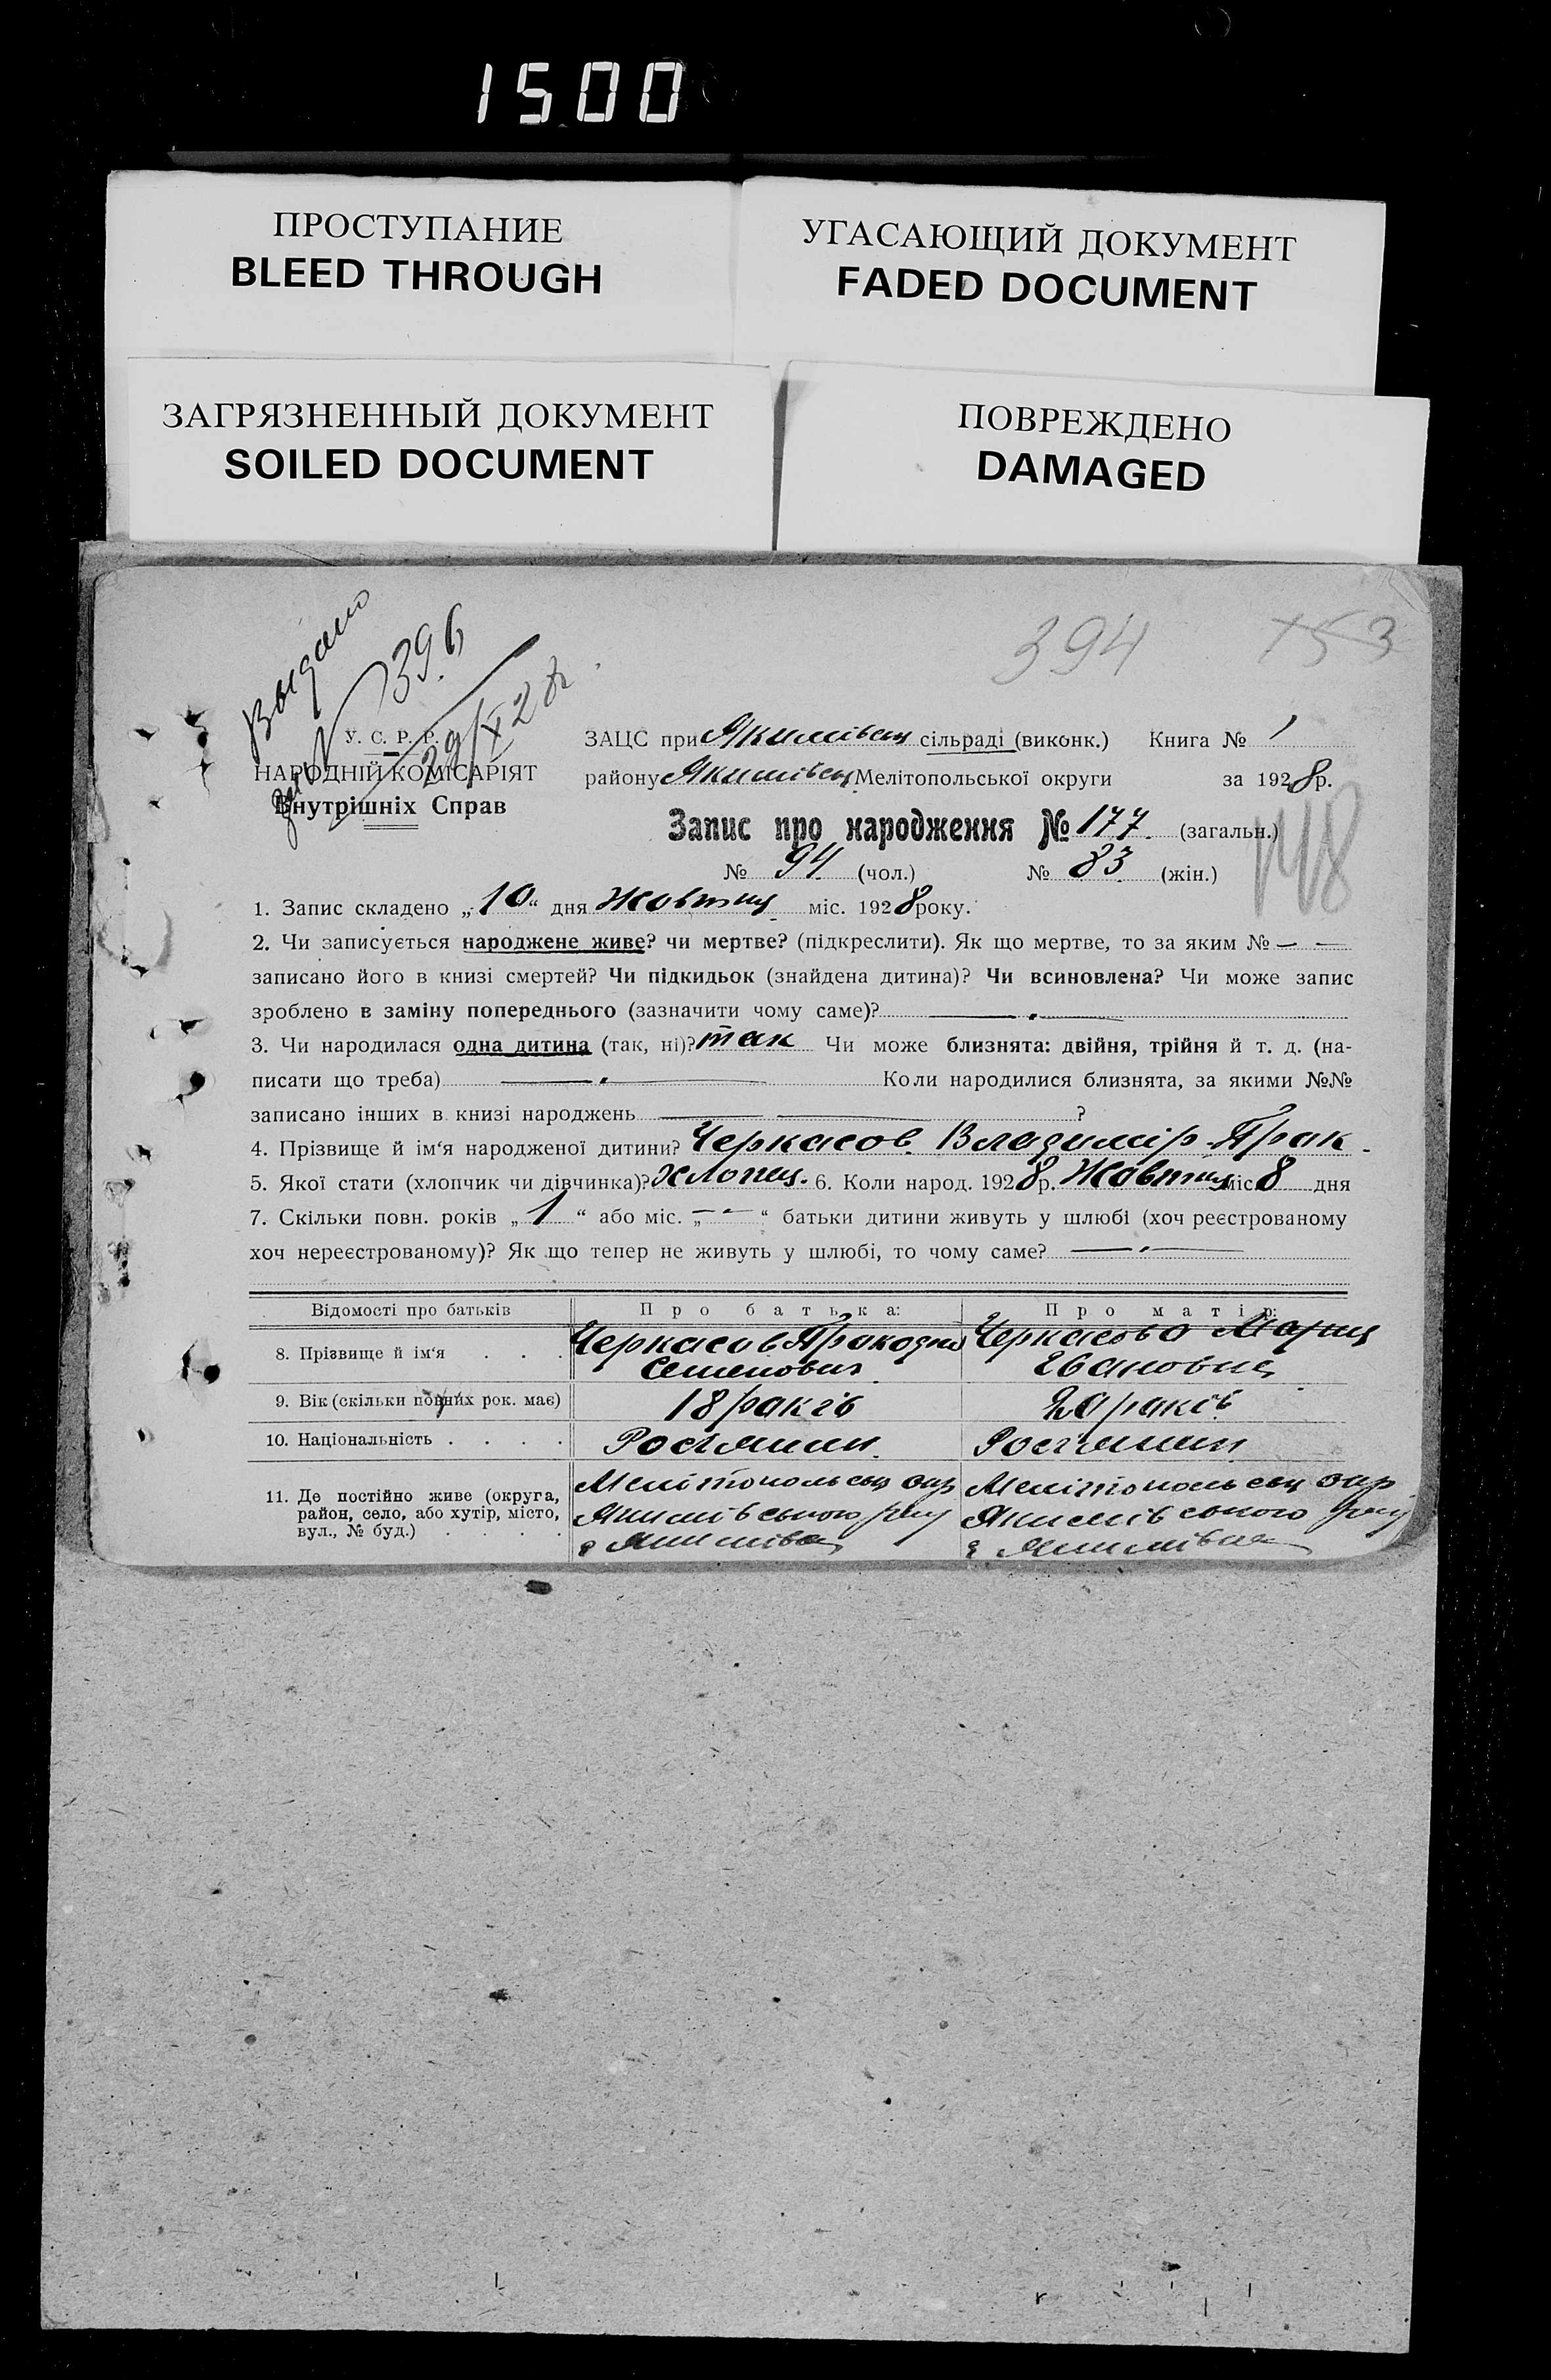 1500
ПРОСТУПАНИЕ
BLEED THROUGH
УГАСАЮЩИЙ ДОКУМЕНТ
FADED DOCUMENT
ЗАГРЯЗНЕННЫЙ ДОКУМЕНТ
SOILED DOCUMENT
ПОВРЕЖДЕНО
DAMAGED
394 153
Выдано
396
29/X 28
У. С. Р. Р.
НАРОДНІЙ КОМІСАРІЯТ
Внутрішніх Справ
ЗАЦС при Якимівськ сільраді (виконк.) Книга № 1
району Якимівськ Мелітопольської округи за 1928р.
Запис про народження № 177 (загальн.)
№ 94 (чол.) № 83 (жін.)
148
1. Запис складено „10“ дня Жовтня міс. 1928 року.
2. Чи записується народжене живе? чи мертве? (підкреслити). Як що мертве, то за яким № — —
записано його в книзі смертей? Чи підкидьок (знайдена дитина)? Чи всиновлена? Чи може запис
зроблено в заміну попереднього (зазначити чому саме)?
3. Чи народилася одна дитина (так, ні)? так Чи може близнята: двійня, трійня й т. д. (на-
писати що треба) Коли народилися близнята, за якими №№
записано інших в книзі народжень ?
4. Прізвище й ім‘я народженої дитини? Черкасов Владимір Прак
5. Якої стати (хлопчик чи дівчинка)? Хлопец. 6. Коли народ. 1928р. Жовтня міс 8 дня
7. Скільки повн. років „1“ або міс. „— —“ батьки дитини живуть у шлюбі (хоч реєстрованому
хоч нереєстрованому)? Як що тепер не живуть у шлюбі, то чому саме?
Відомості про батьків Про батька: Про матір:
8. Прізвище й ім‘я . . . Черкасов Семенович Черкасова Мария Івановна
9. Вік (скільки повних рок. має) 18 раків 20 раків
10. Національність . . . . Росіянин Росіянин
11. Де постійно живе (округа, Мелітопольськ окр Мелітопольськ окр
район, село, або хутір, місто, Якимівського рну Якимівського рну
вул., № буд.) . . . . Якимівка Якимівка